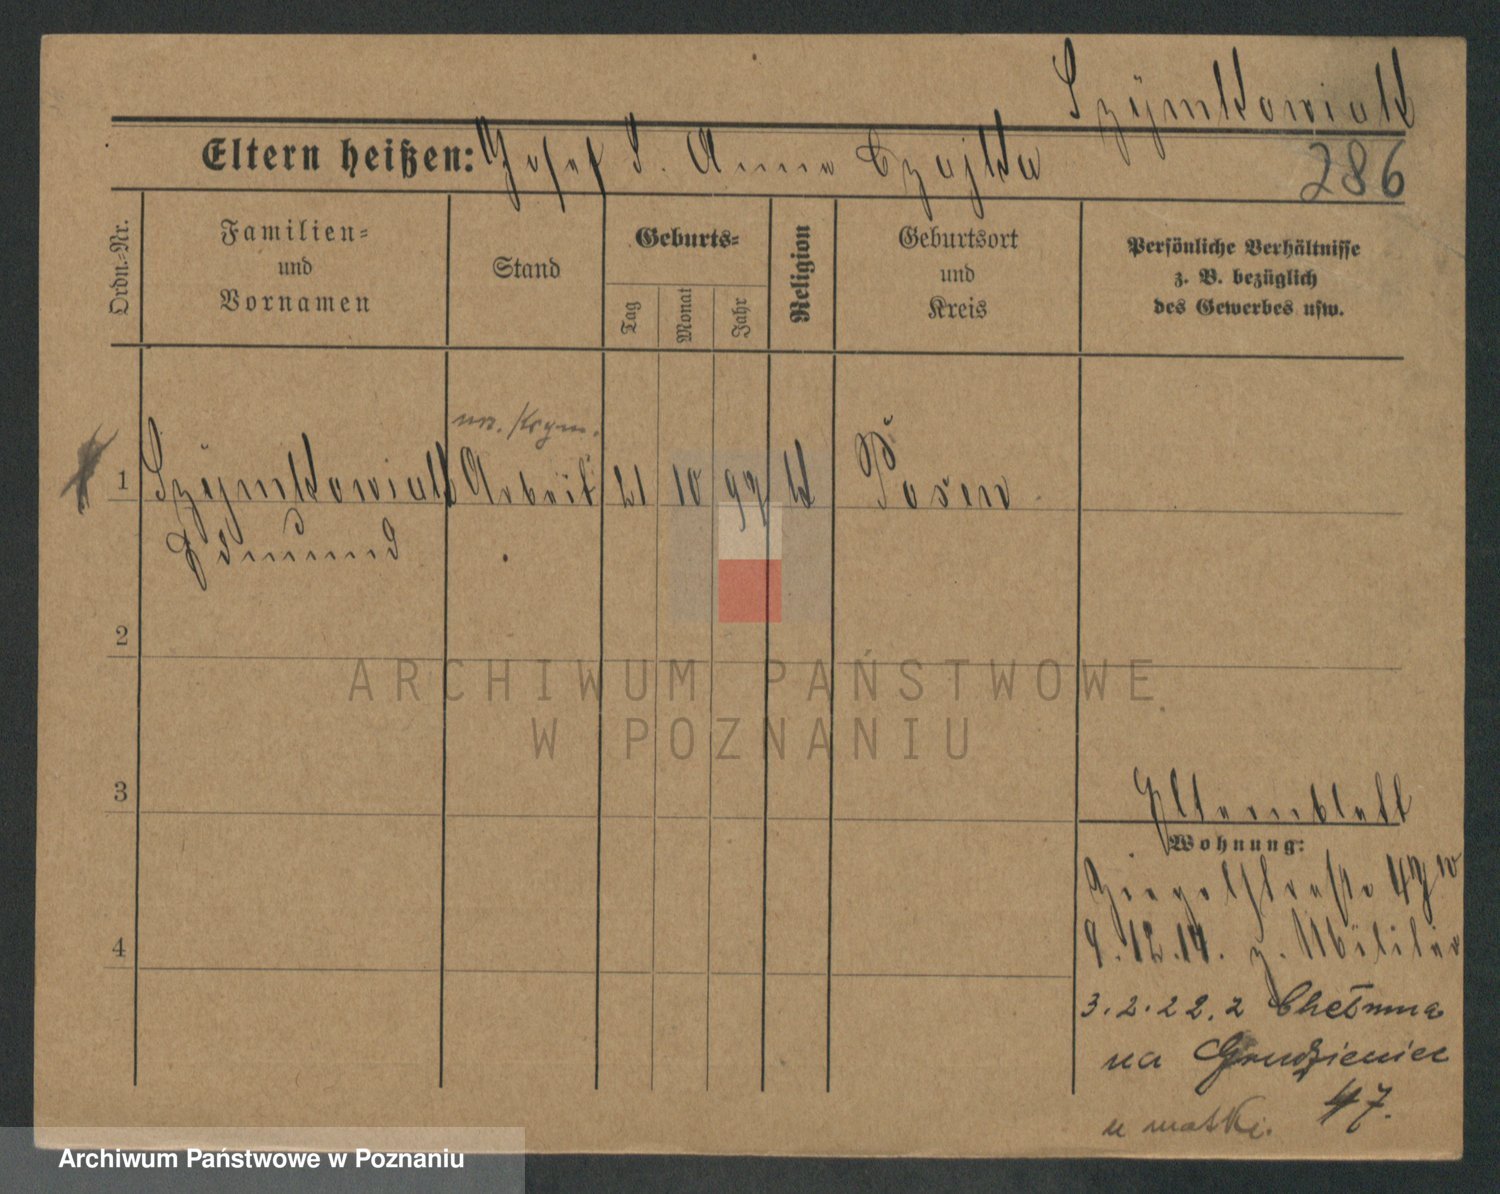 Szÿmkowiak
Eltern heißen: Josef S. Anna Czajka
286
Ordn.-Nr.
Familien-
und
Vornamen
Stand
Geburts-
Tag
Monat
Jahr
Religion
Geburtsort
und
Kreis
Persönliche Verhältnisse
z. B. bezüglich
des Gewerbes usw.
1 Szÿmkowiak Arbeit 21 10 97 k Posen
Edmund
2
3
4
Elternblatt
Wohnung:
Ziegelstraße 47 IV
9.12.14. z. Militär
3.2.22. z Chełmna
na Grudzieniec
47.
u matki.
ARCHIWUM PAŃSTWOWE
W POZNANIU
Archiwum Państwowe w Poznaniu